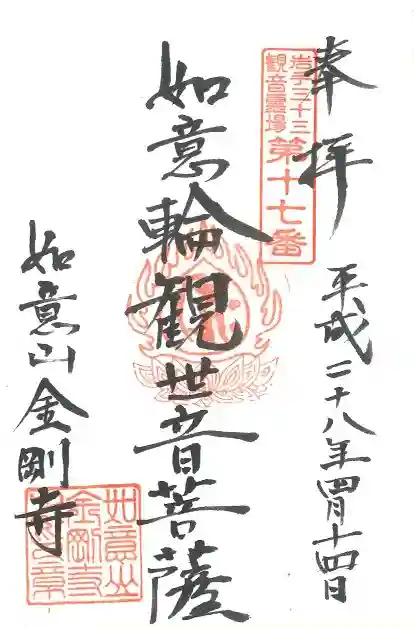 奉拝
平成二十八年四月十四日
岩手三十三
観音霊場
第十七番
如意輪観世音菩薩
如意山金剛寺
如意山
金剛寺